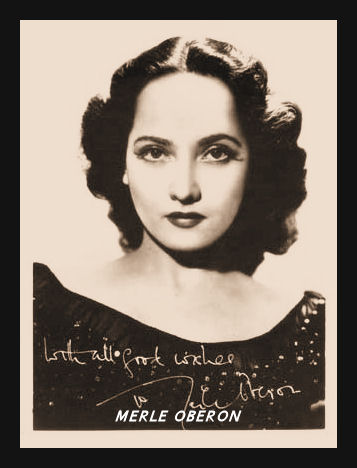 With all good wishes
to Merle Oberon
MERLE OBERON